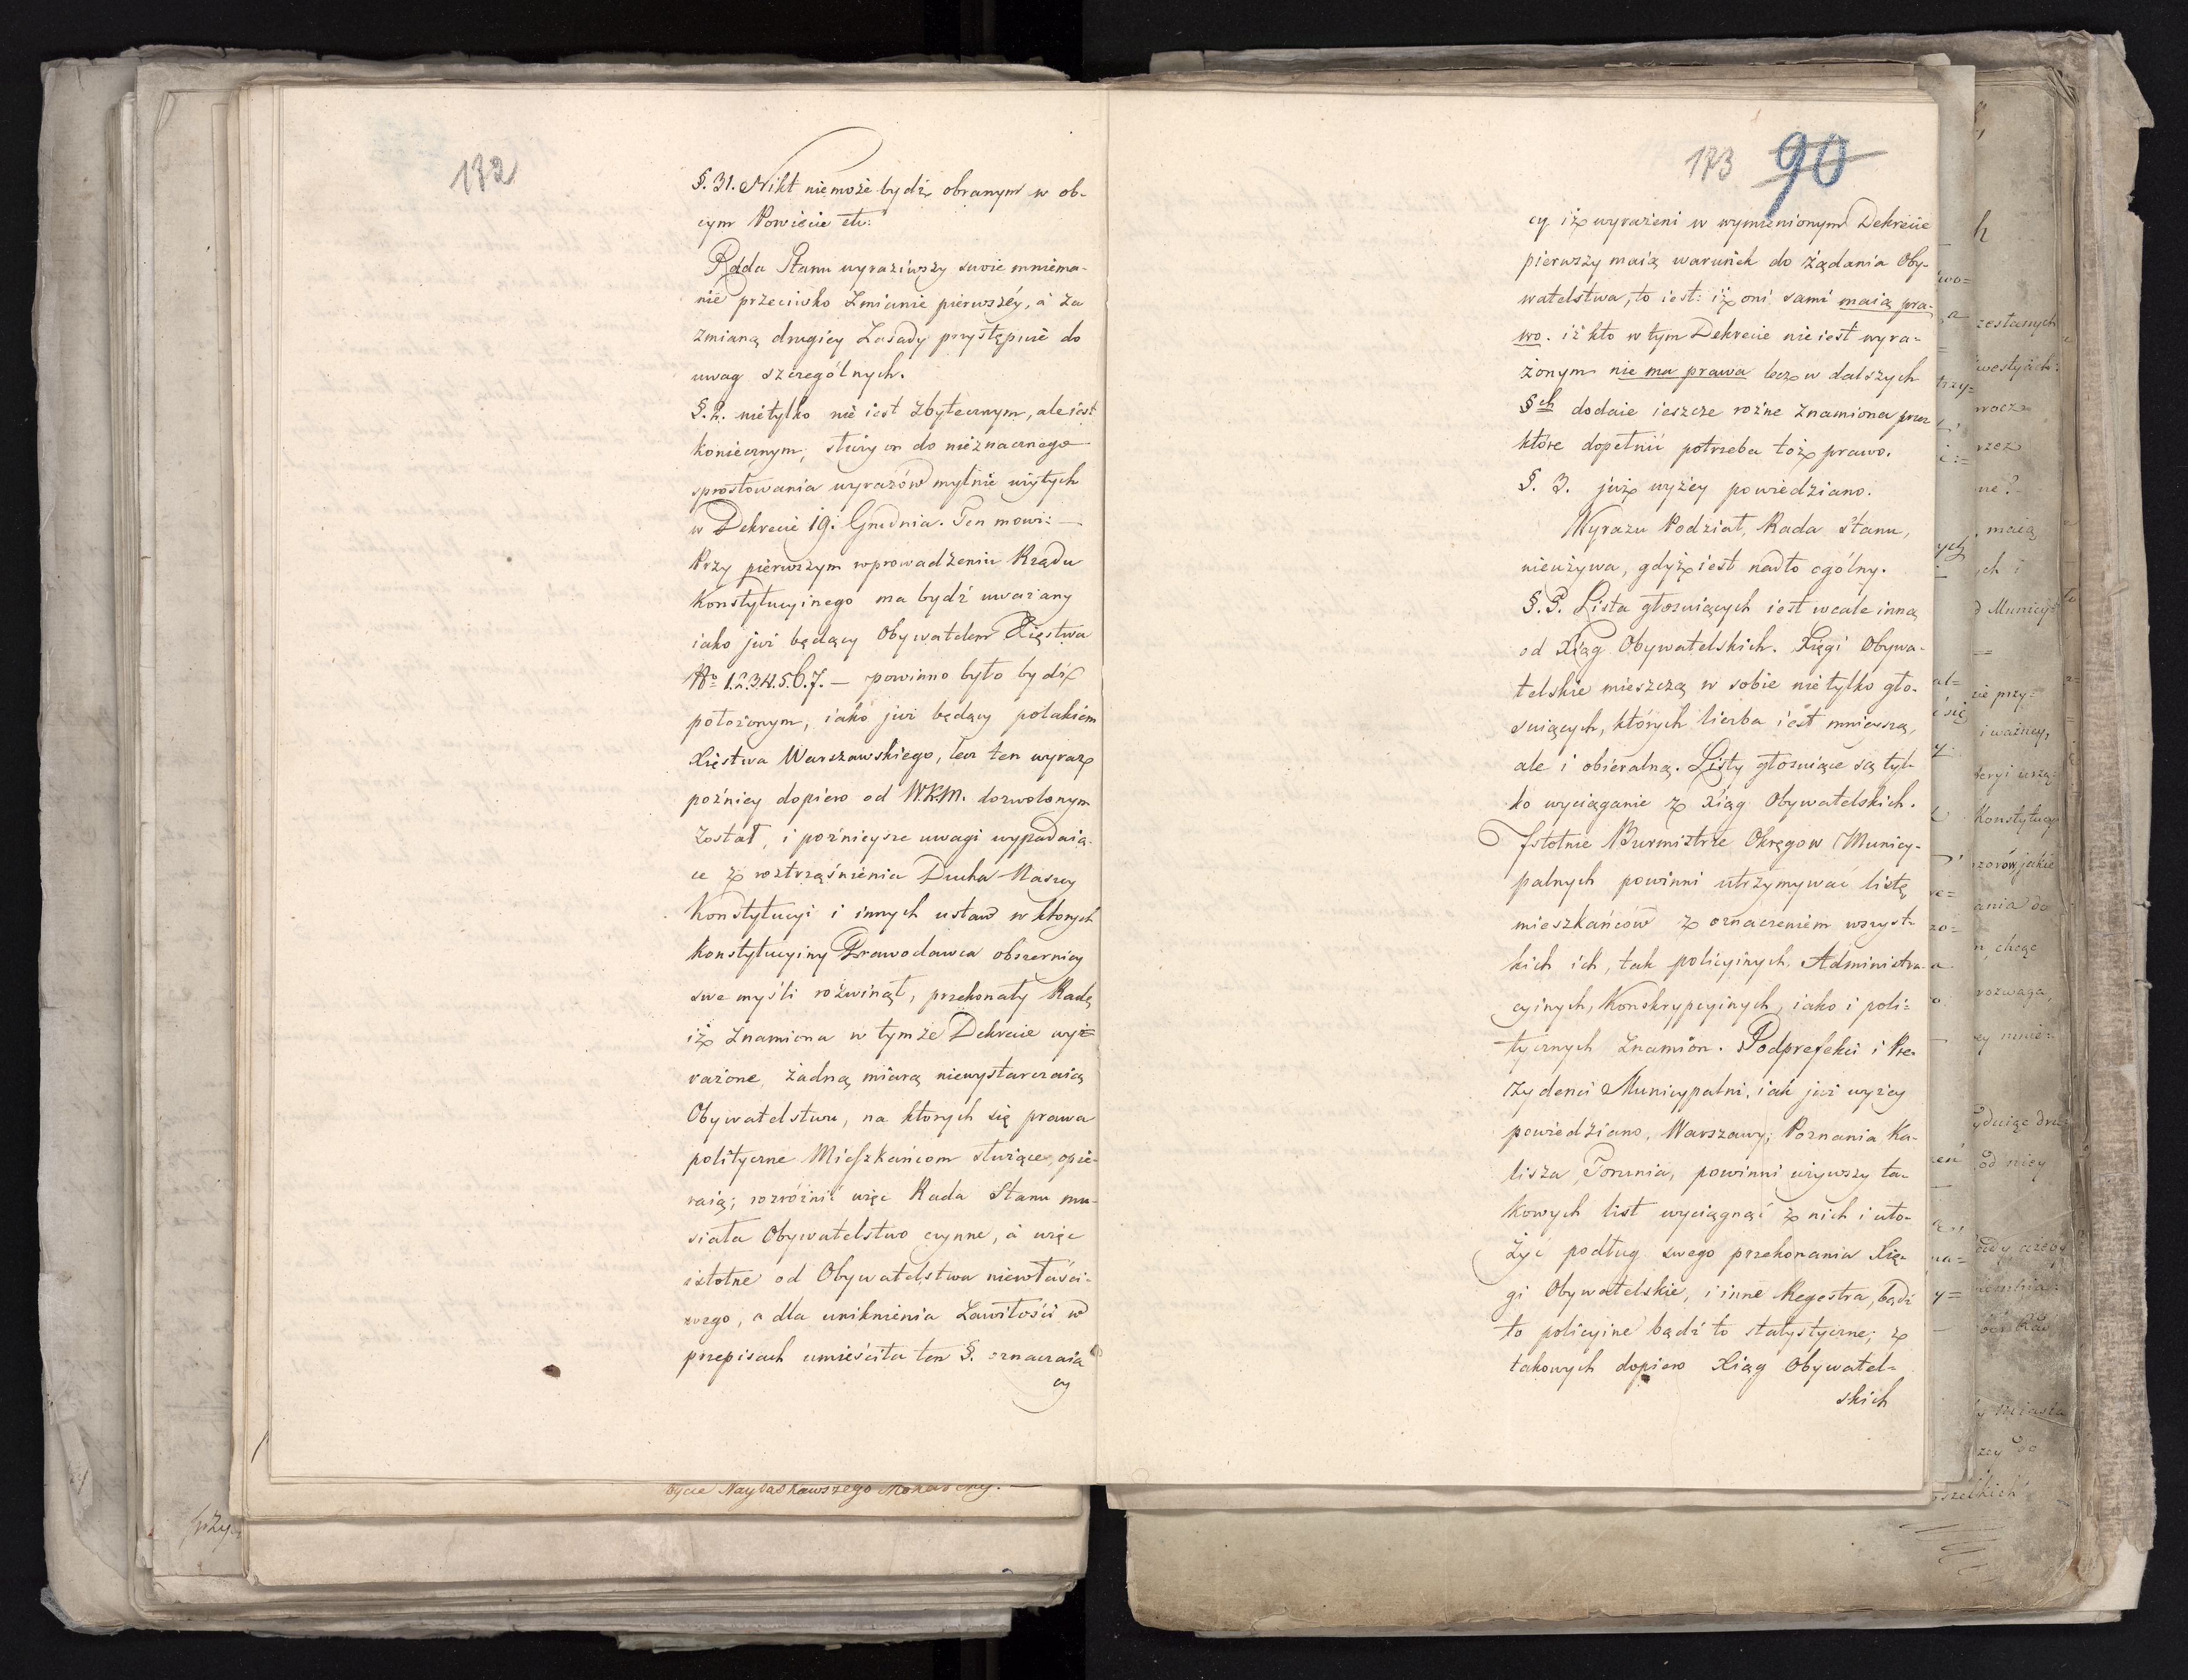 172
§. 31. Nikt niemoże bydź obranym w ob-
cym Powiecie etc:
Rada Stanu wyraziwszy swoie mniema-
nie przeciwko Zmianie pierwszéy, á za
zmianą drugiey Zasady przystępuie do
uwag szczególnych.
§. 2. nietylko nie iest zbytecznym, ale iest
koniecznym, służy on do nieznacznego
sprostowania wyrazów mylnie użytych
w Dekrecie 19. Grudnia. Ten mowi: —
Przy pierwszym wprowadzeniu Rządu
Konstytucyinego ma bydź uważany
iako już będący Obywatelem Xięstwa
No 1.2.3.4.5.6.7. — powinno było bydź
położonym, iako już będący polakiem
Xięstwa Warszawskiego, lecz ten wyraz
poźniey dopiero od W.K.M. dozwolonym
został, i poźnieysze uwagi wypadaią-
ce z roztrząśnienia Ducha Naszey
Konstytucyi i innych ustaw w ktorych
Konstytucyiny Prawodawca obszerniey
swe myśli rozwinął, przekonały Radę
iż Znamiona w tymże Dekrecie wy-
rażone, żadną miarą niewystarczaią
Obywatelstwu, na ktorych się prawa
polityczne Mieszkańcom służące opie-
raią; rozróżnić więc Rada Stanu mu-
siała Obywatelstwo czynne, á więc
istotne od Obywatelstwa niewłaści-
wego, a dla uniknienia Zawiłości w
przepisach umieściła ten §. oznaczaią
cy
173 90
cy iż wyrażeni w wymienionym Dekrecie
pierwszy maią warunek do żądania Oby-
watelstwa, to iest: iż oni sami maią pra-
wo. iż kto w tym Dekrecie nie iest wyra-
żonym nie ma prawa lecz w dalszych
§ch dodaie ieszcze rożne Znamiona przez
które dopełnić potrzeba toż prawo.
§. 3. już wyżey powiedziano.
Wyrazu Podział, Rada Stanu,
nieużywa, gdyż iest nadto ogólny.
§. 5. Lista głosuiących iest wcale inną
od Xiąg Obywatelskich. Xięgi Obywa-
telskie mieszczą w sobie nietylko gło-
suiących, których liczba iest mnieyszą,
ale i obieralną. Listy głosuiące są tyl-
ko wyciąganie z Xiąg Obywatelskich.
Istotnie Burmistrze Okręgow Municy-
palnych powinni utrzymywać listę
mieszkańców z oznaczeniem wszyst-
kich ich, tak policyinych, Administra-
cyinych, Konskrypcyinych, iako i poli-
tycznych Znamion. Podprefekci i Pre-
zydenci Municypalni, iak już wyżey
powiedziano, Warszawy, Poznania Ka-
lisza Torunia, powinni używszy ta-
kowych list wyciągnąć z nich i uło-
żyć podług swego przekonania Xię-
gi Obywatelskie, i inne Regestra, bądź
to policyine bądź to statystyczne; z
takowych dopiero Xiąg Obywatel-
skich